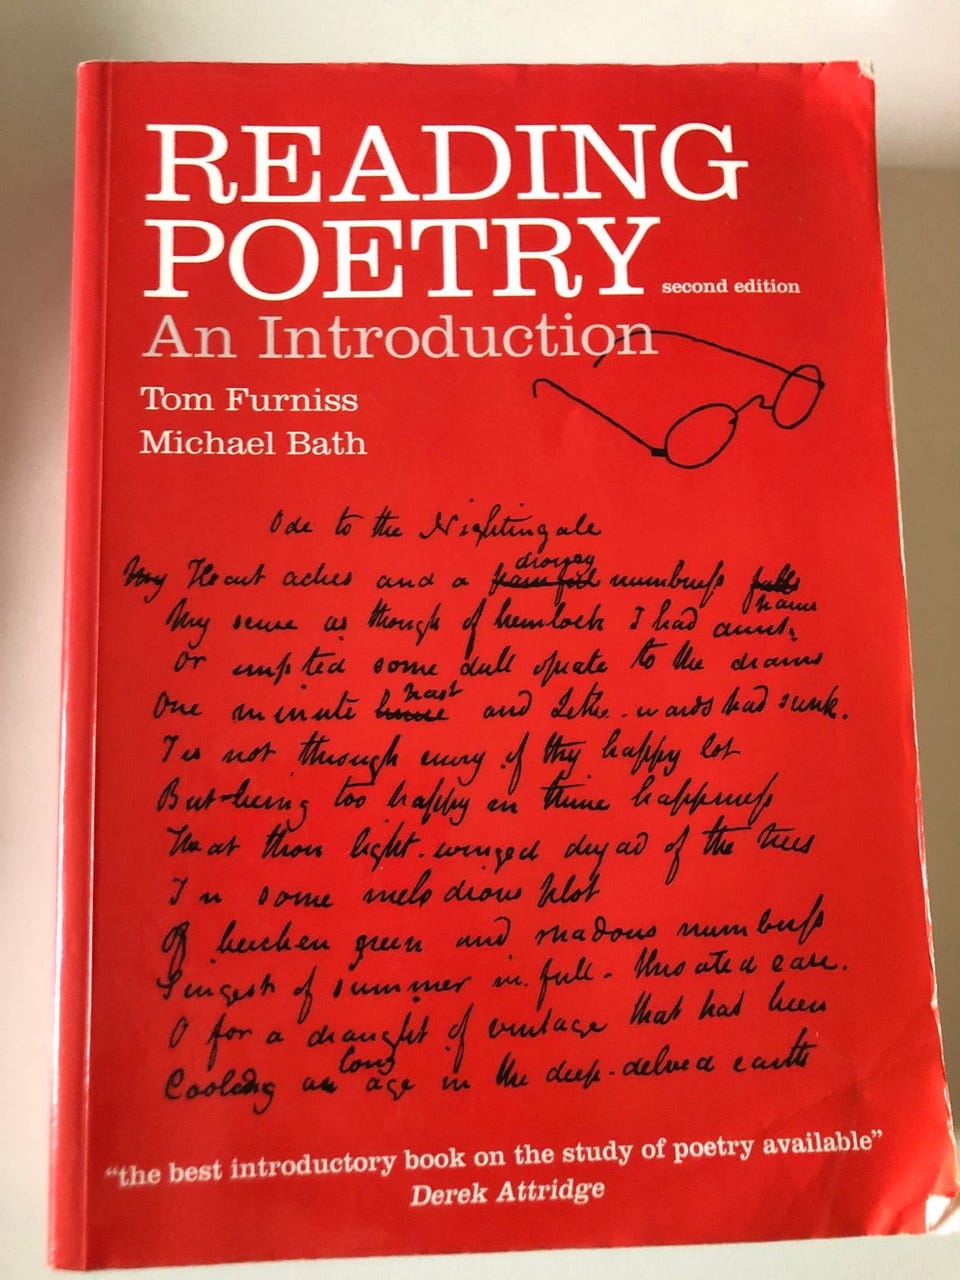 READING
POETRY second edition
An Introduction
Tom Furniss
Michael Bath
Ode to the Nightingale
drowsy
My Heart aches and a painful numbness falls
pains
My sense as though of hemlock I had
Or emptied some dull opiate to the drains
past
One minute hence and Lethe-wards had sunk.
Tis not through envy of thy happy lot
But being too happy in thine happiness
That thou light-winged dryad of the trees
In some melodious plot
Of beechen green and shadows numberless
Singest of summer in full-throated ease.
O for a draught of vintage that has been
long
Cooling an age in the deep-delved earth
"the best introductory book on the study of poetry available"
Derek Attridge